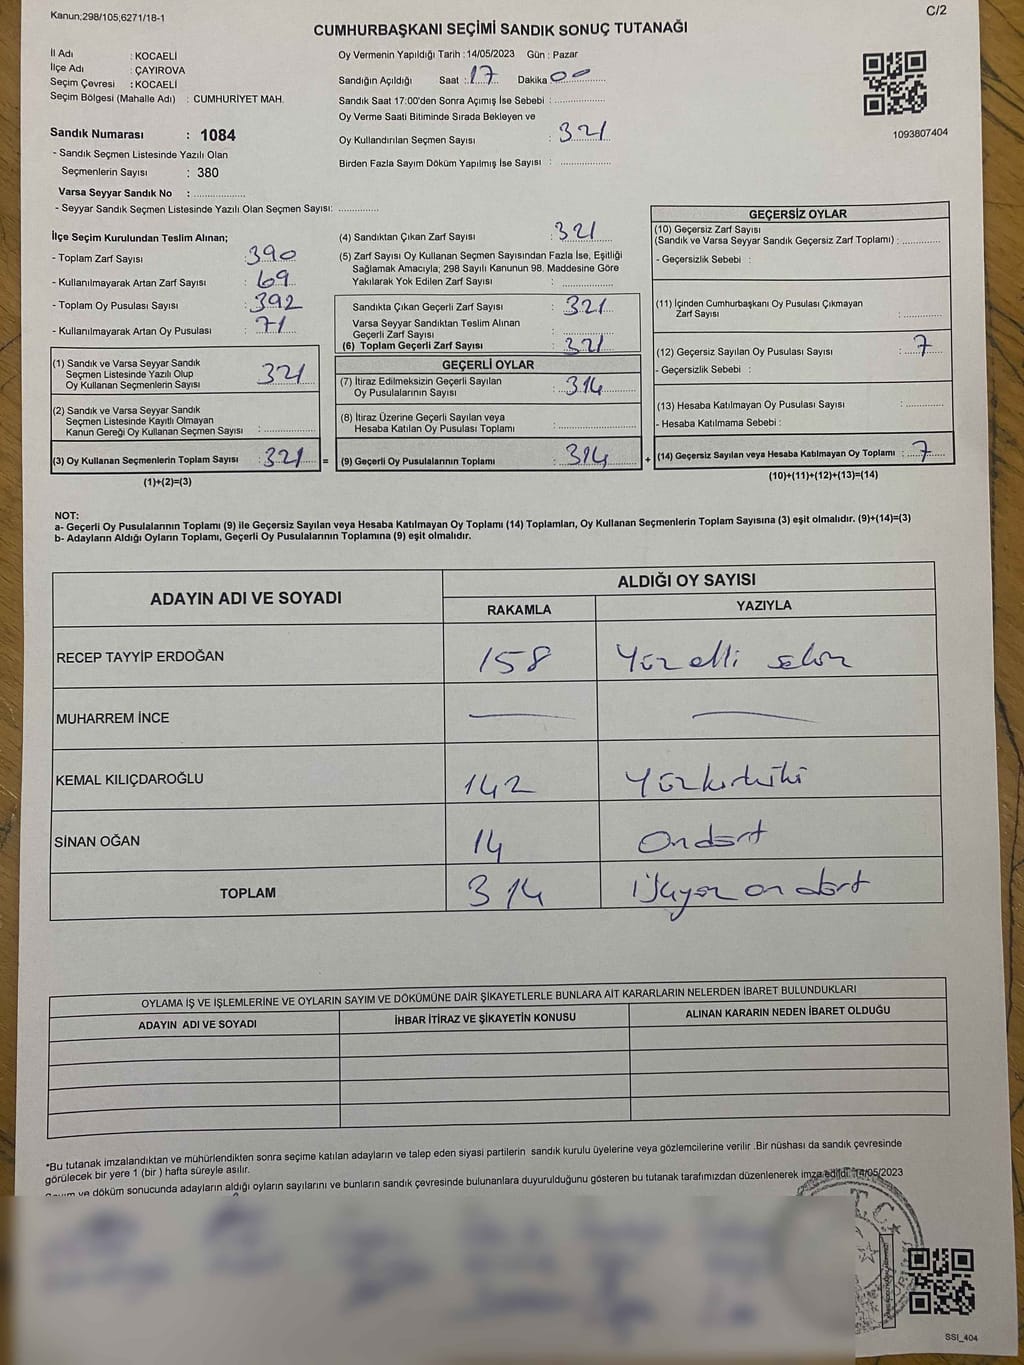 Kanun;298/105,6271/18-1
C/2
CUMHURBAŞKANI SEÇİMİ SANDIK SONUÇ TUTANAĞI
İl Adı : KOCAELİ
İlçe Adı : ÇAYIROVA
Seçim Çevresi : KOCAELİ
Seçim Bölgesi (Mahalle Adı) : CUMHURİYET MAH.
Sandık Numarası : 1084
- Sandık Seçmen Listesinde Yazılı Olan
Seçmenlerin Sayısı : 380
Varsa Seyyar Sandık No : ...............
- Seyyar Sandık Seçmen Listesinde Yazılı Olan Seçmen Sayısı: ............
Oy Vermenin Yapıldığı Tarih : 14/05/2023 Gün : Pazar
Sandığın Açıldığı Saat : 17 Dakika 00
Sandık Saat 17:00'den Sonra Açımış İse Sebebi : ...............
Oy Verme Saati Bitiminde Sırada Bekleyen ve
Oy Kullandırılan Seçmen Sayısı : 321
Birden Fazla Sayım Döküm Yapılmış İse Sayısı : ...............
1093807404
İlçe Seçim Kurulundan Teslim Alınan;
- Toplam Zarf Sayısı : 390
- Kullanılmayarak Artan Zarf Sayısı : 69
- Toplam Oy Pusulası Sayısı : 392
- Kullanılmayarak Artan Oy Pusulası : 71
(1) Sandık ve Varsa Seyyar Sandık
Seçmen Listesinde Yazılı Olup
Oy Kullanan Seçmenlerin Sayısı 321
(2) Sandık ve Varsa Seyyar Sandık
Seçmen Listesinde Kayıtlı Olmayan
Kanun Gereği Oy Kullanan Seçmen Sayısı : ...............
(3) Oy Kullanan Seçmenlerin Toplam Sayısı : 321 =
(1)+(2)=(3)
(4) Sandıktan Çıkan Zarf Sayısı : 321
(5) Zarf Sayısı Oy Kullanan Seçmen Sayısından Fazla İse, Eşitliği
Sağlamak Amacıyla; 298 Sayılı Kanunun 98. Maddesine Göre
Yakılarak Yok Edilen Zarf Sayısı : ...............
Sandıkta Çıkan Geçerli Zarf Sayısı : 321
Varsa Seyyar Sandıktan Teslim Alınan
Geçerli Zarf Sayısı : ...............
(6) Toplam Geçerli Zarf Sayısı : 321
GEÇERLİ OYLAR
(7) İtiraz Edilmeksizin Geçerli Sayılan
Oy Pusulalarının Sayısı : 314
(8) İtiraz Üzerine Geçerli Sayılan veya
Hesaba Katılan Oy Pusulası Toplamı : ...............
(9) Geçerli Oy Pusulalarının Toplamı : 314 +
GEÇERSİZ OYLAR
(10) Geçersiz Zarf Sayısı
(Sandık ve Varsa Seyyar Sandık Geçersiz Zarf Toplamı) : ............
- Geçersizlik Sebebi :
(11) İçinden Cumhurbaşkanı Oy Pusulası Çıkmayan
Zarf Sayısı : ............
(12) Geçersiz Sayılan Oy Pusulası Sayısı : 7
- Geçersizlik Sebebi :
(13) Hesaba Katılmayan Oy Pusulası Sayısı : ............
- Hesaba Katılmama Sebebi :
(14) Geçersiz Sayılan veya Hesaba Katılmayan Oy Toplamı : 7
(10)+(11)+(12)+(13)=(14)
NOT:
a- Geçerli Oy Pusulalarının Toplamı (9) ile Geçersiz Sayılan veya Hesaba Katılmayan Oy Toplamı (14) Toplamları, Oy Kullanan Seçmenlerin Toplam Sayısına (3) eşit olmalıdır. (9)+(14)=(3)
b- Adayların Aldığı Oyların Toplamı, Geçerli Oy Pusulalarının Toplamına (9) eşit olmalıdır.
ADAYIN ADI VE SOYADI ALDIĞI OY SAYISI
RAKAMLA YAZIYLA
RECEP TAYYİP ERDOĞAN 158 Yüz elli sekiz
MUHARREM İNCE — —
KEMAL KILIÇDAROĞLU 142 Yüzkırkiki
SİNAN OĞAN 14 Ondört
TOPLAM 314 Üçyüz on dört
OYLAMA İŞ VE İŞLEMLERİNE VE OYLARIN SAYIM VE DÖKÜMÜNE DAİR ŞİKAYETLERLE BUNLARA AİT KARARLARIN NELERDEN İBARET BULUNDUKLARI
ADAYIN ADI VE SOYADI İHBAR İTİRAZ VE ŞİKAYETİN KONUSU ALINAN KARARIN NEDEN İBARET OLDUĞU
*Bu tutanak imzalandıktan ve mühürlendikten sonra seçime katılan adayların ve talep eden siyasi partilerin sandık kurulu üyelerine veya gözlemcilerine verilir .Bir nüshası da sandık çevresinde
görülecek bir yere 1 (bir ) hafta süreyle asılır.
ve döküm sonucunda adayların aldığı oyların sayılarını ve bunların sandık çevresinde bulunanlara duyurulduğunu gösteren bu tutanak tarafımızdan düzenlenerek imza edildi. 14/05/2023
T.C.
SSI_404